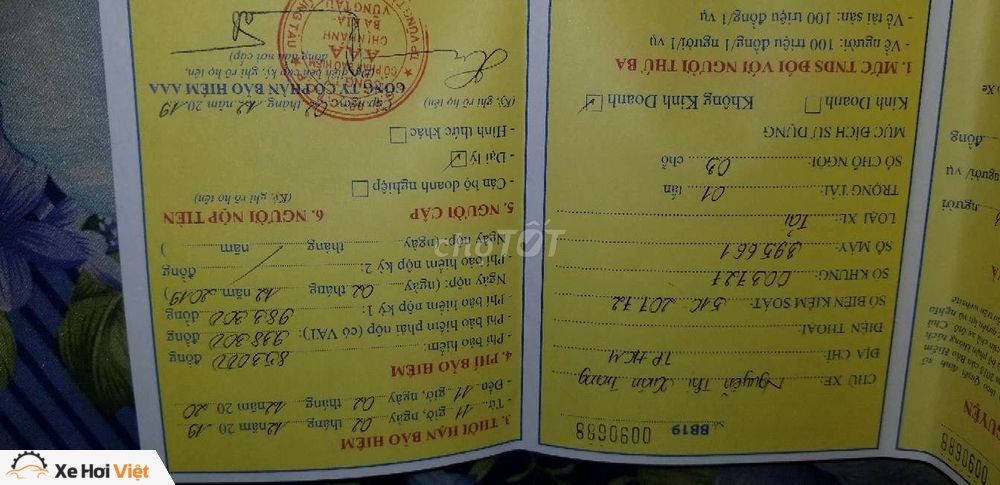 Số BB19 0090688
CHỦ XE: Nguyễn Thị Xuân Trang
ĐỊA CHỈ: TP HCM
ĐIỆN THOẠI:
SỐ BIỂN KIỂM SOÁT: 51C 207.72
SỐ KHUNG: 003727
SỐ MÁY: 395661
LOẠI XE: Tải
TRỌNG TẢI: 01 tấn
SỐ CHỖ NGỒI: 03 chỗ
MỤC ĐÍCH SỬ DỤNG
Kinh Doanh Không Kinh Doanh
1. MỨC TNDS ĐỐI VỚI NGƯỜI THỨ BA
- Về người: 100 triệu đồng/1 người/1 vụ
- Về tài sản: 100 triệu đồng/1 vụ
3. THỜI HẠN BẢO HIỂM
- Từ: 11 giờ, ngày 02 tháng 12 năm 20 19
- Đến 11 giờ, ngày 02 tháng 12 năm 20 20
4. PHÍ BẢO HIỂM
- Phí bảo hiểm: 853.000 đồng
- Phí bảo hiểm phải nộp (có VAT): 938.300 đồng
- Phí bảo hiểm nộp kỳ 1: 983.300 đồng
Ngày nộp: (ngày) 02 tháng 12 năm 2019)
- Phí bảo hiểm nộp kỳ 2: đồng
Ngày nộp (ngày tháng năm )
5. NGƯỜI CẤP 6. NGƯỜI NỘP TIỀN
(Ký, ghi rõ họ tên)
- Cán bộ doanh nghiệp
- Đại lý
- Hình thức khác
(Ký, ghi rõ họ tên)
Cấp ngày 02 tháng 12 năm 20 19
CÔNG TY CỔ PHẦN BẢO HIỂM AAA
CHI NHÁNH
BÀ RỊA-
VŨNG TÀU
0090688
đồng
người
người/ vụ
chợTỐT
Xe Hơi Việt